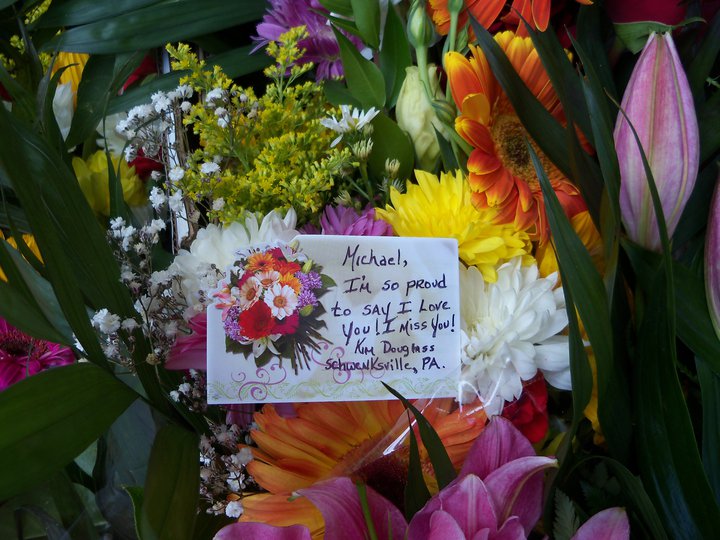 Michael,
I'm so proud
to say I Love
You! I Miss You!
Kim Douglass
Schwenksville, PA.